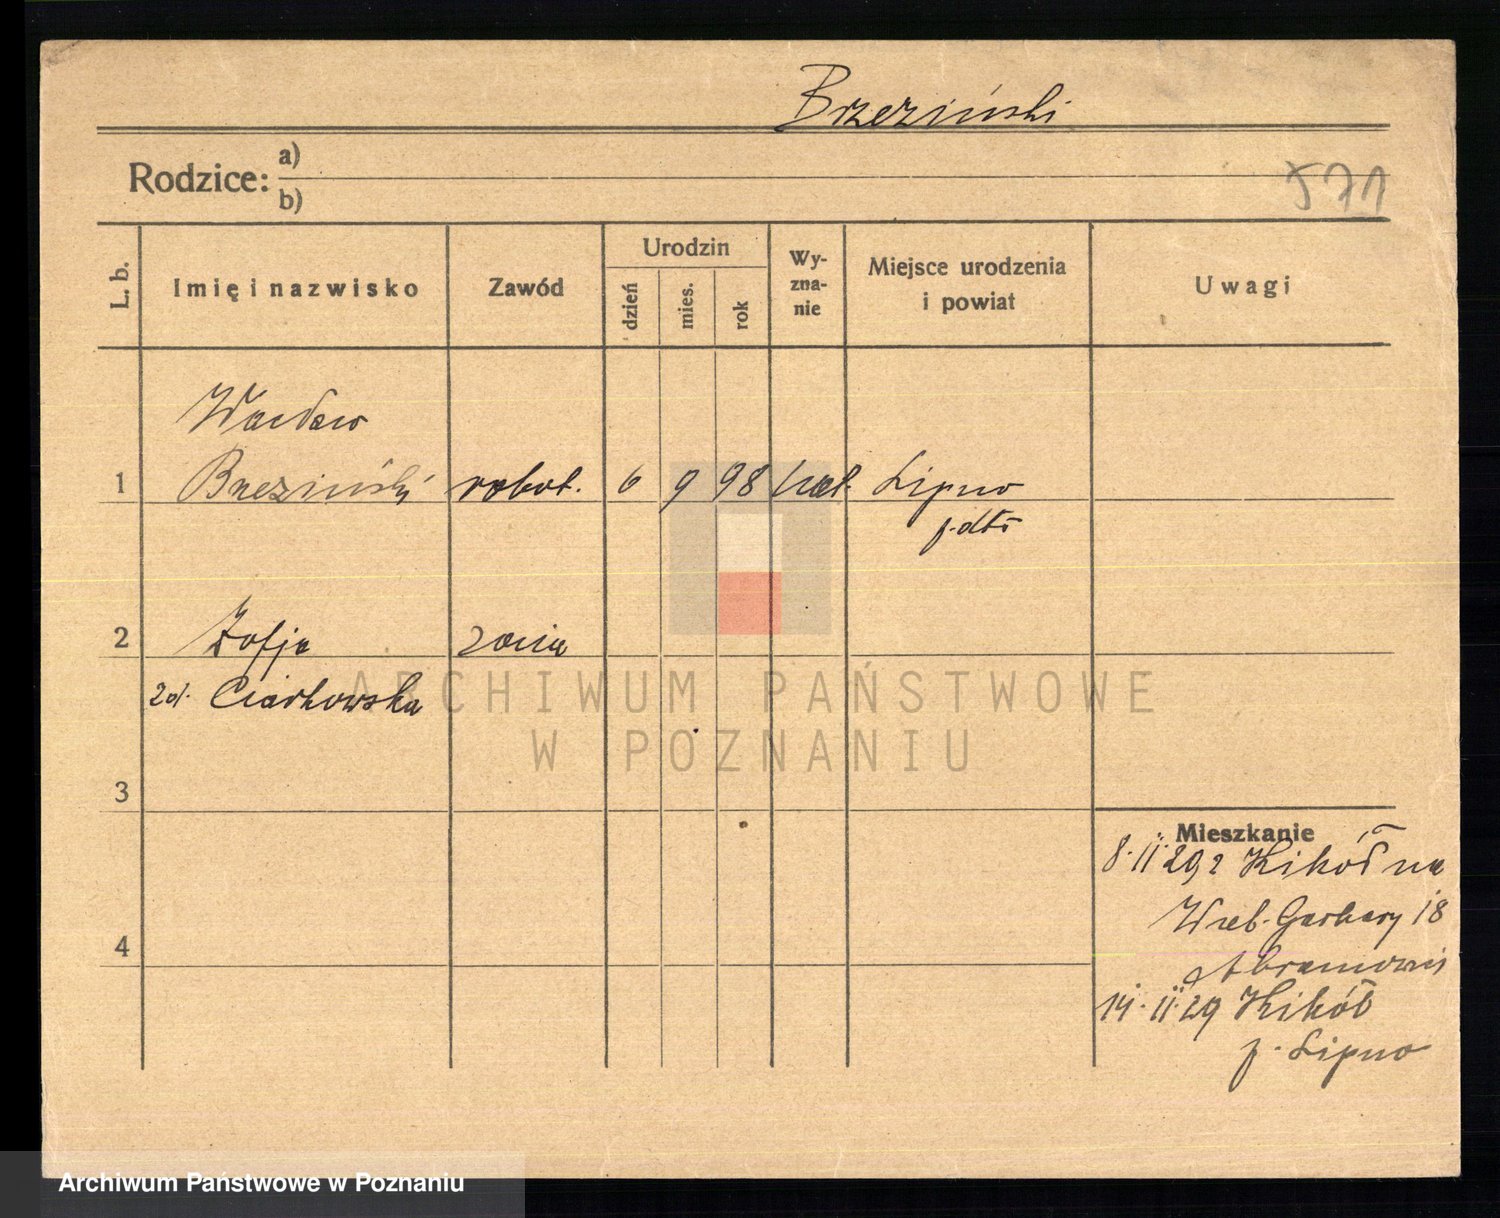 Brzeziński
Rodzice: a)
b)
571
L. b.
Imię i nazwisko
Zawód
Urodzin
dzień
mies.
rok
Wy-
zna-
nie
Miejsce urodzenia
i powiat
Uwagi
Wacław
1 Brzeziński robot. 6 9 98 kat. Lipno
2 Zofja żona
zd. Ciarkowska
3
4
Mieszkanie
8.II 29 z Kikół na
Wreb. Garbary 18
14.II.29 Kikół
p. Lipno
ARCHIWUM PAŃSTWOWE
W POZNANIU
Archiwum Państwowe w Poznaniu